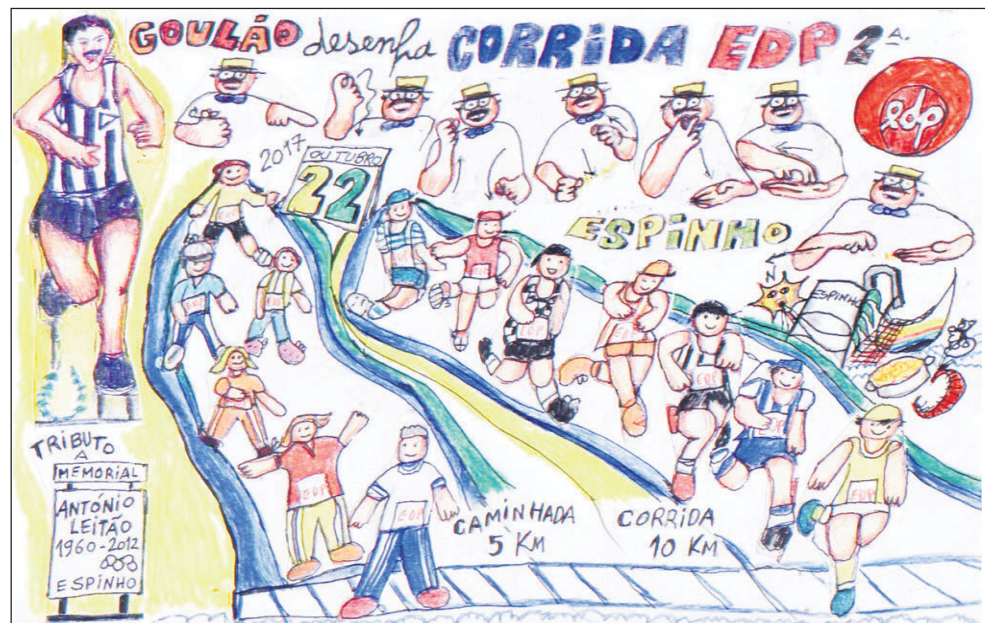 GOULÃO desenha CORRIDA EDP 2ª.
edp
2017
OUTUBRO
22
ESPINHO
ESPINHO
EDP
EDP
EDP
EDP
EDP
EDP
EDP
EDP
EDP
TRIBUTO
A
MEMORIAL
ANTÓNIO
LEITÃO
1960-2012
ESPINHO
CAMINHADA
5 KM
CORRIDA
10 KM